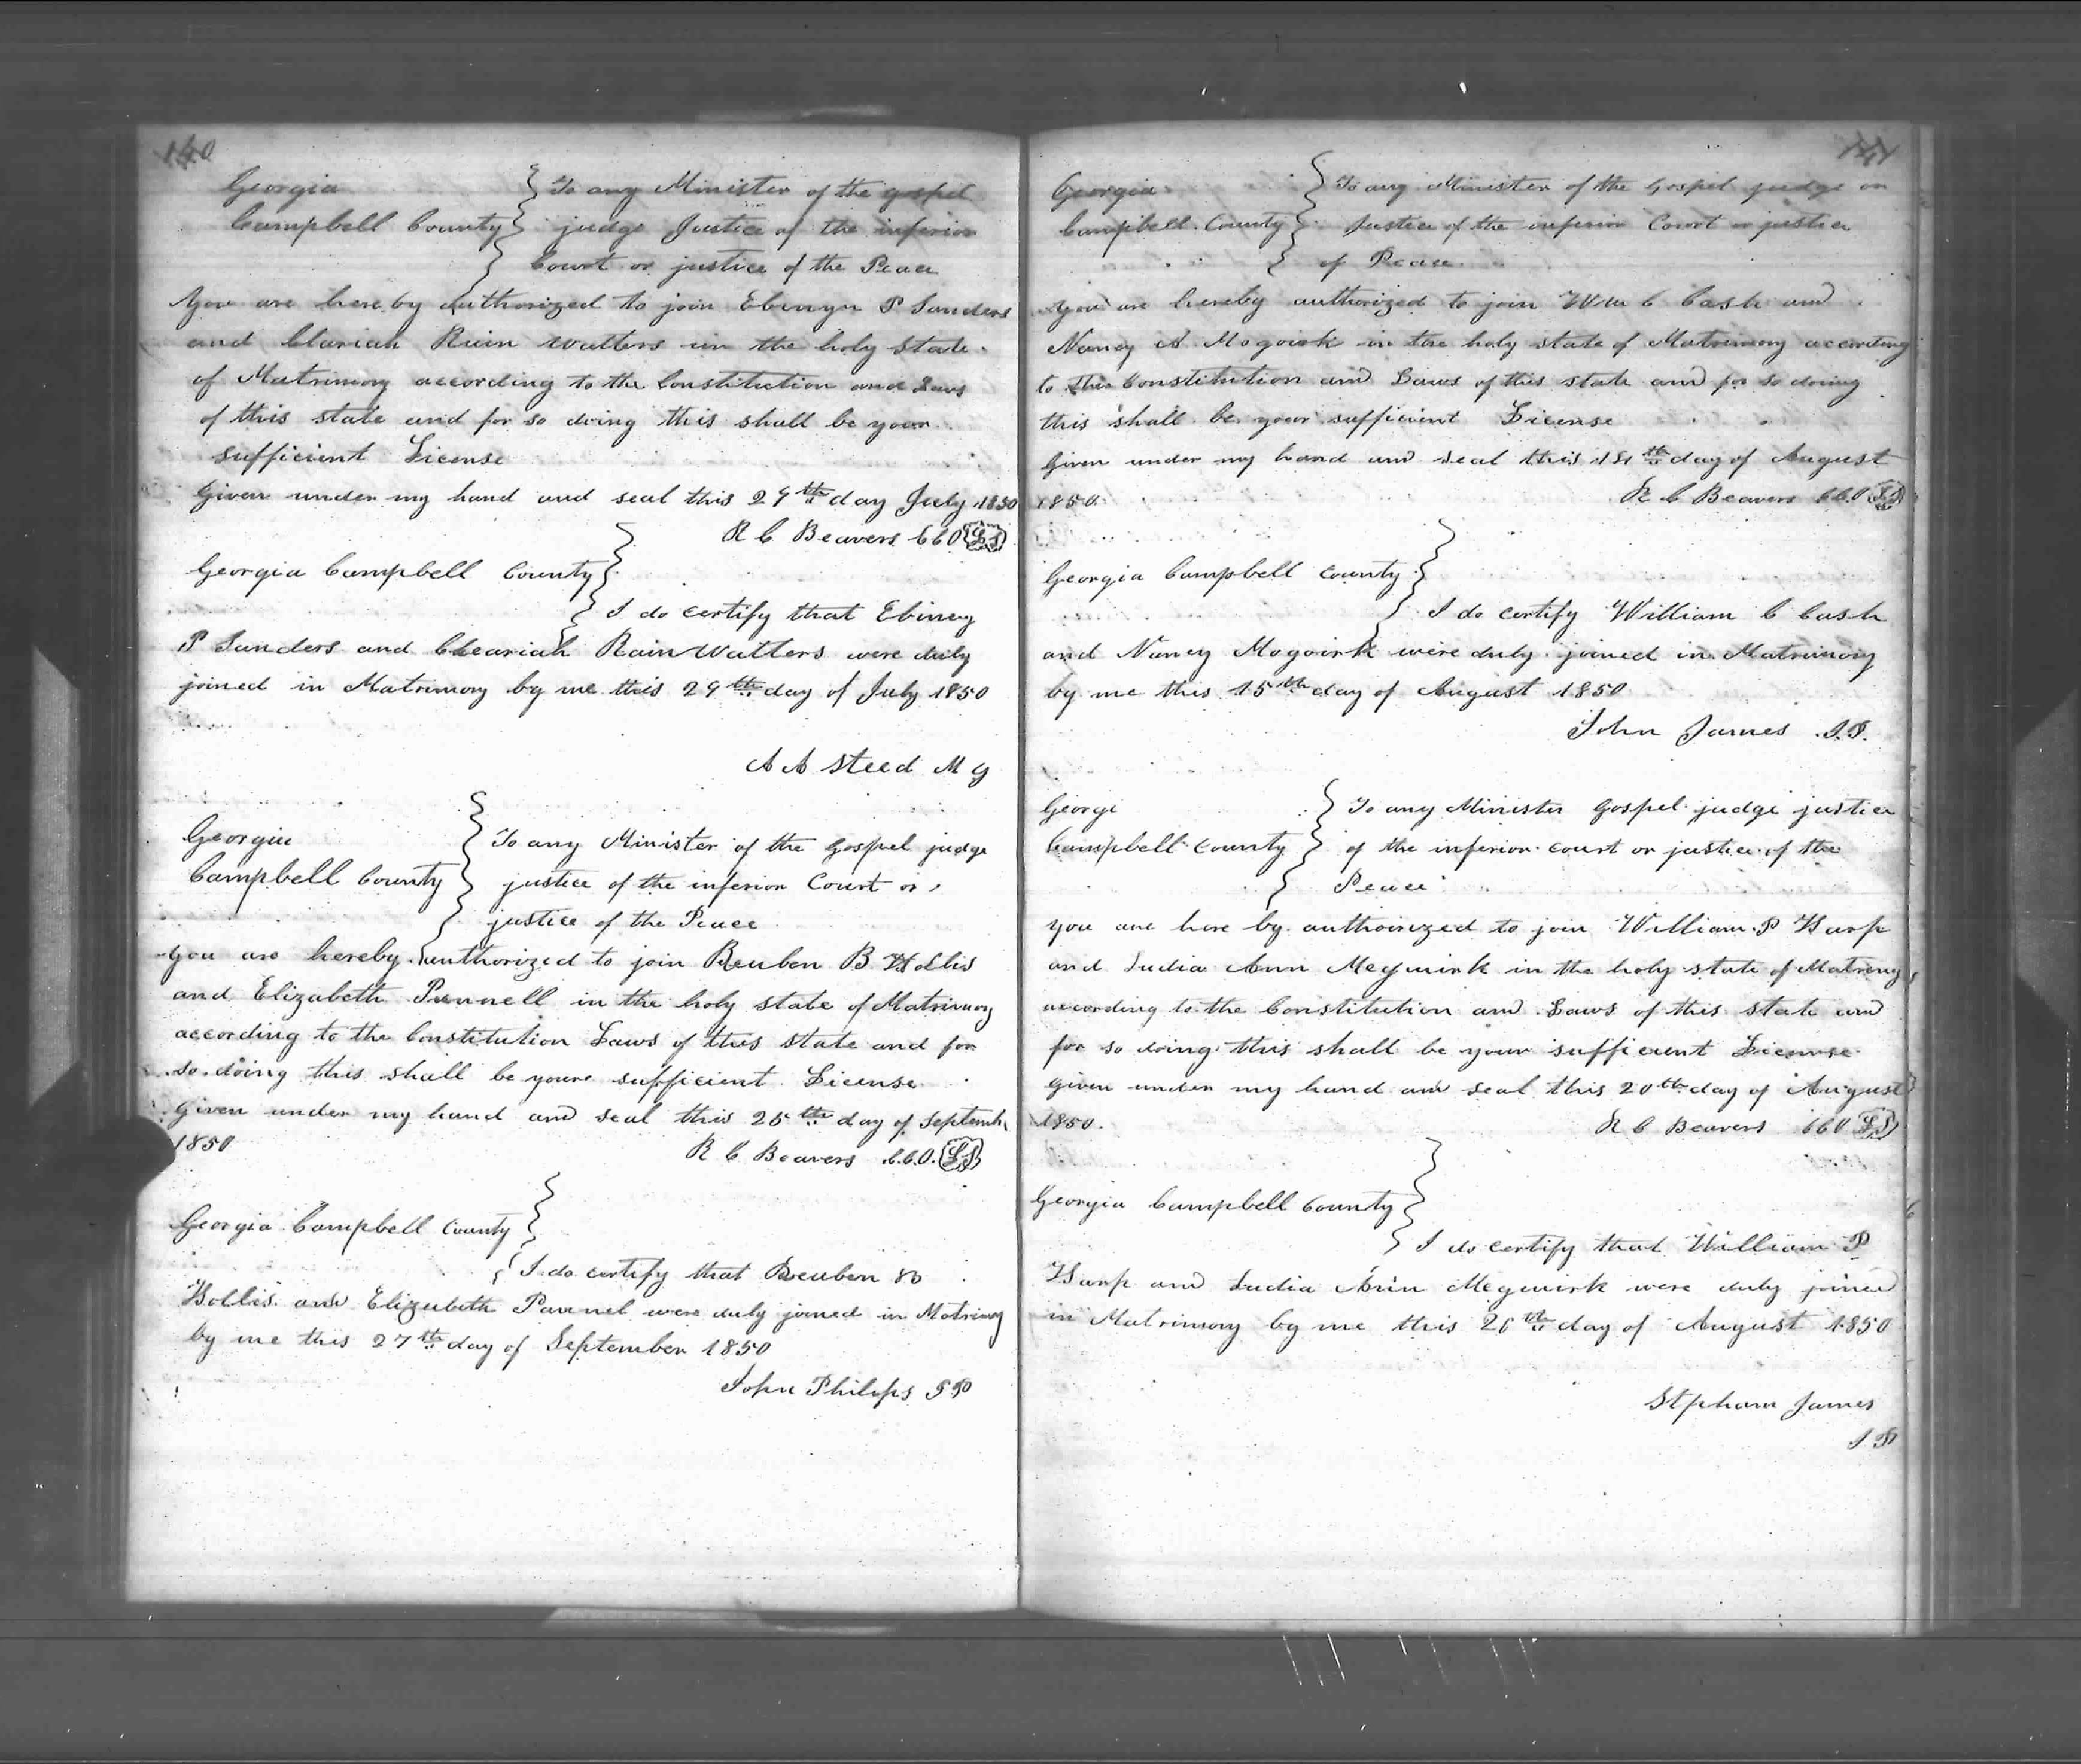 140
Georgia
Campbell County
To any Minister of the gospel
judge Justice of the inferior
Court or justice of the Peace
You are here by authorized to join Ebenezer P Sanders
and Clariah Rain watters in the holy state
of Matrimony according to the Constitution and Laws
of this state and for so doing this shall be your
sufficient License
Given under my hand and seal this 29th day July 1850
R C Beavers CCO LS
Georgia Campbell County
I do certify that Ebinezy
P Sanders and Cleariah Rain Watters were duly
joined in Matrimony by me this 29th day of July 1850
A A Steed M G
Georgia
Campbell County
To any Minister of the Gospel judge
justice of the inferior Court or
justice of the Peace
you are hereby authorized to join Reuben B Hollis
and Elizabeth Pannell in the holy state of Matrimony
according to the Constitution Laws of this state and for
so doing this shall be youre sufficient License
Given under my hand and seal this 25th day of Septemb
1850
R C Beavers C.C.O. LS
Georgia Campbell County
I do certify that Reuben B
Hollis and Elizabeth Pannel were duly joined in Matrimony
by me this 27th day of September 1850
John Philips JP
141
Georgia
Campbell County
To any Minister of the Gospel judge or
Justice of the inferior Court or justice
of Peace
you are hereby authorized to join Wm C Cash and
Nancy A Mogoirk in the holy state of Matrimony according
to the Constitution and Laws of this state and for so doing
this shall be your sufficient License
Given under my hand and seal this 14th day of August
1850
R C Beavers CCO LS
Georgia Campbell County
I do certify William C Cash
and Nancy Mogoirk were duly joined in Matrimony
by me this 15th day of August 1850
John James J.P.
Georgi
Campbell County
To any Minister Gospel judge justice
of the inferior court or justice of the
Peace
you are here by authoirized to join William P Harp
and Ludia Ann Megwirk in the holy state of Matrimy
according to the Constitution and Laws of this state and
for so doing this shall be your sufficient License
given under my hand and seal this 20th day of August
1850.
R C Beavers CCO LS
Georgia Campbell County
I do certify that William P
Harp and Ludia Ann Megwirk were duly joined
in Matrimony by me this 26th day of August 1850
Stpham James
J P